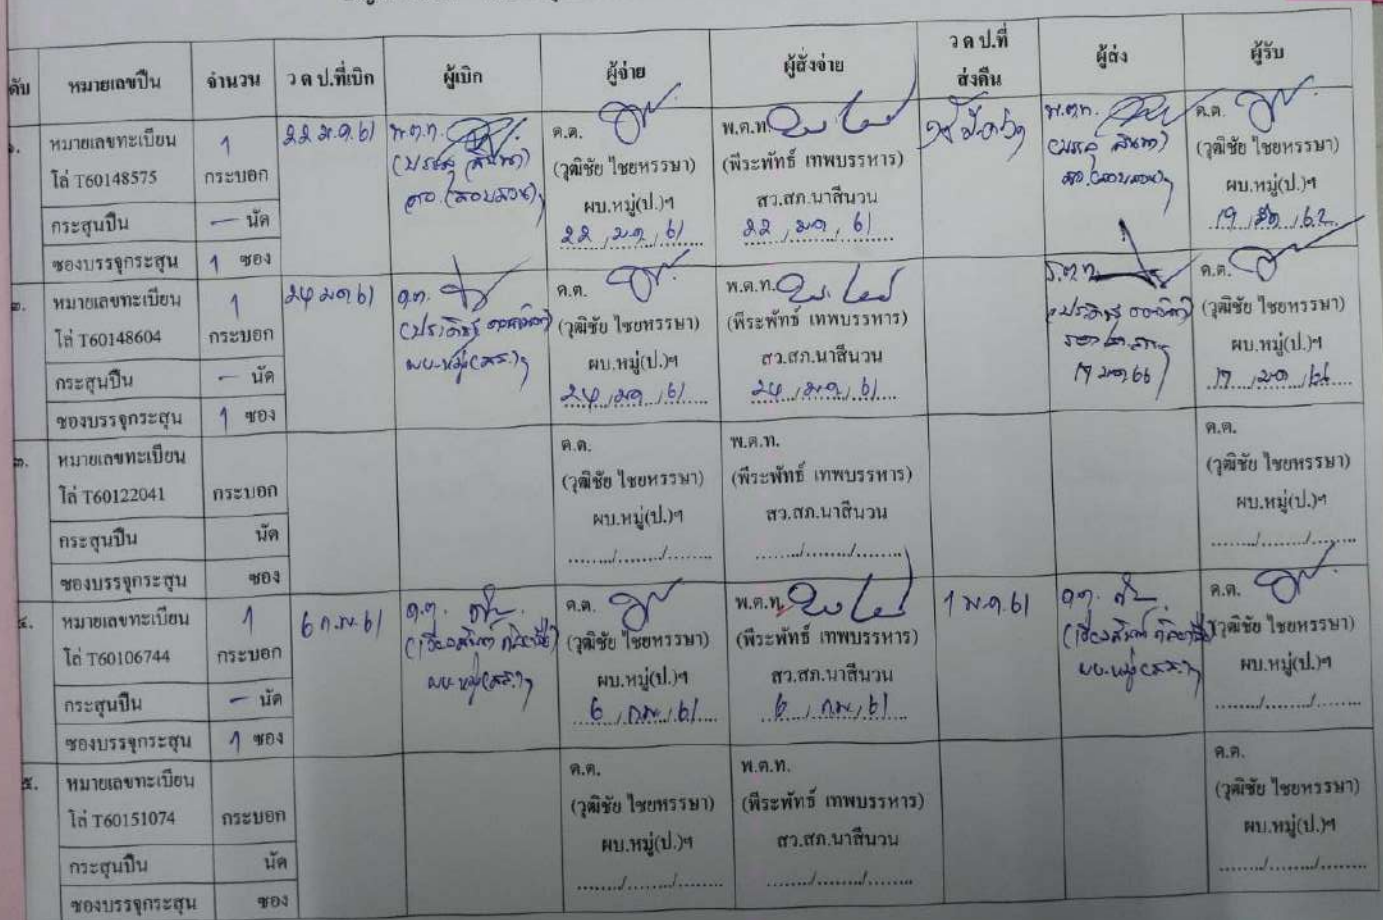 ดับ หมายเลขปืน จำนวน ว ด ป.ที่เบิก ผู้เบิก ผู้จ่าย ผู้สั่งจ่าย ว ด ป.ที่ส่งคืน ผู้ส่ง ผู้รับ
๑.
หมายเลขทะเบียน
โล่ T60148575
1
กระบอก
22 ม.ค. 61
พ.ต.ท.
ด.ต.
(วุฒิชัย ไชยหรรษา)
ผบ.หมู่(ป.)ฯ
22 / ม.ค. / 61
พ.ต.ท.
(พีระพัทธ์ เทพบรรหาร)
สว.สภ.นาสีนวน
22 / ม.ค. / 61
พ.ต.ท.
ด.ต.
(วุฒิชัย ไชยหรรษา)
ผบ.หมู่(ป.)ฯ
กระสุนปืน
— นัด
ซองบรรจุกระสุน
1 ซอง
๒.
หมายเลขทะเบียน
โล่ T60148604
1
กระบอก
24 ม.ค. 61
ด.ต.
ผบ.หมู่(สส.)ฯ
ด.ต.
(วุฒิชัย ไชยหรรษา)
ผบ.หมู่(ป.)ฯ
24 / ม.ค. / 61
พ.ต.ท.
(พีระพัทธ์ เทพบรรหาร)
สว.สภ.นาสีนวน
24 / ม.ค. / 61
ร.ต.ท.
ด.ต.
(วุฒิชัย ไชยหรรษา)
ผบ.หมู่(ป.)ฯ
กระสุนปืน
— นัด
ซองบรรจุกระสุน
1 ซอง
๓.
หมายเลขทะเบียน
โล่ T60122041
กระบอก
ด.ต.
(วุฒิชัย ไชยหรรษา)
ผบ.หมู่(ป.)ฯ
......../......../........
พ.ต.ท.
(พีระพัทธ์ เทพบรรหาร)
สว.สภ.นาสีนวน
......../......../........
ด.ต.
(วุฒิชัย ไชยหรรษา)
ผบ.หมู่(ป.)ฯ
......../......../........
กระสุนปืน
นัด
ซองบรรจุกระสุน
ซอง
๔.
หมายเลขทะเบียน
โล่ T60106744
1
กระบอก
6 ก.พ. 61
ด.ต.
ผบ.หมู่(สส.)ฯ
ด.ต.
(วุฒิชัย ไชยหรรษา)
ผบ.หมู่(ป.)ฯ
6 / ก.พ. / 61
พ.ต.ท.
(พีระพัทธ์ เทพบรรหาร)
สว.สภ.นาสีนวน
6 / ก.พ. / 61
ด.ต.
ผบ.หมู่(สส.)ฯ
ด.ต.
(วุฒิชัย ไชยหรรษา)
ผบ.หมู่(ป.)ฯ
......../......../........
กระสุนปืน
— นัด
ซองบรรจุกระสุน
1 ซอง
๕.
หมายเลขทะเบียน
โล่ T60151074
กระบอก
ด.ต.
(วุฒิชัย ไชยหรรษา)
ผบ.หมู่(ป.)ฯ
......../......../........
พ.ต.ท.
(พีระพัทธ์ เทพบรรหาร)
สว.สภ.นาสีนวน
......../......../........
ด.ต.
(วุฒิชัย ไชยหรรษา)
ผบ.หมู่(ป.)ฯ
......../......../........
กระสุนปืน
นัด
ซองบรรจุกระสุน
ซอง